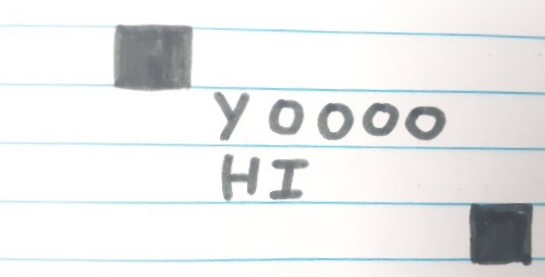 YOOOO
HI